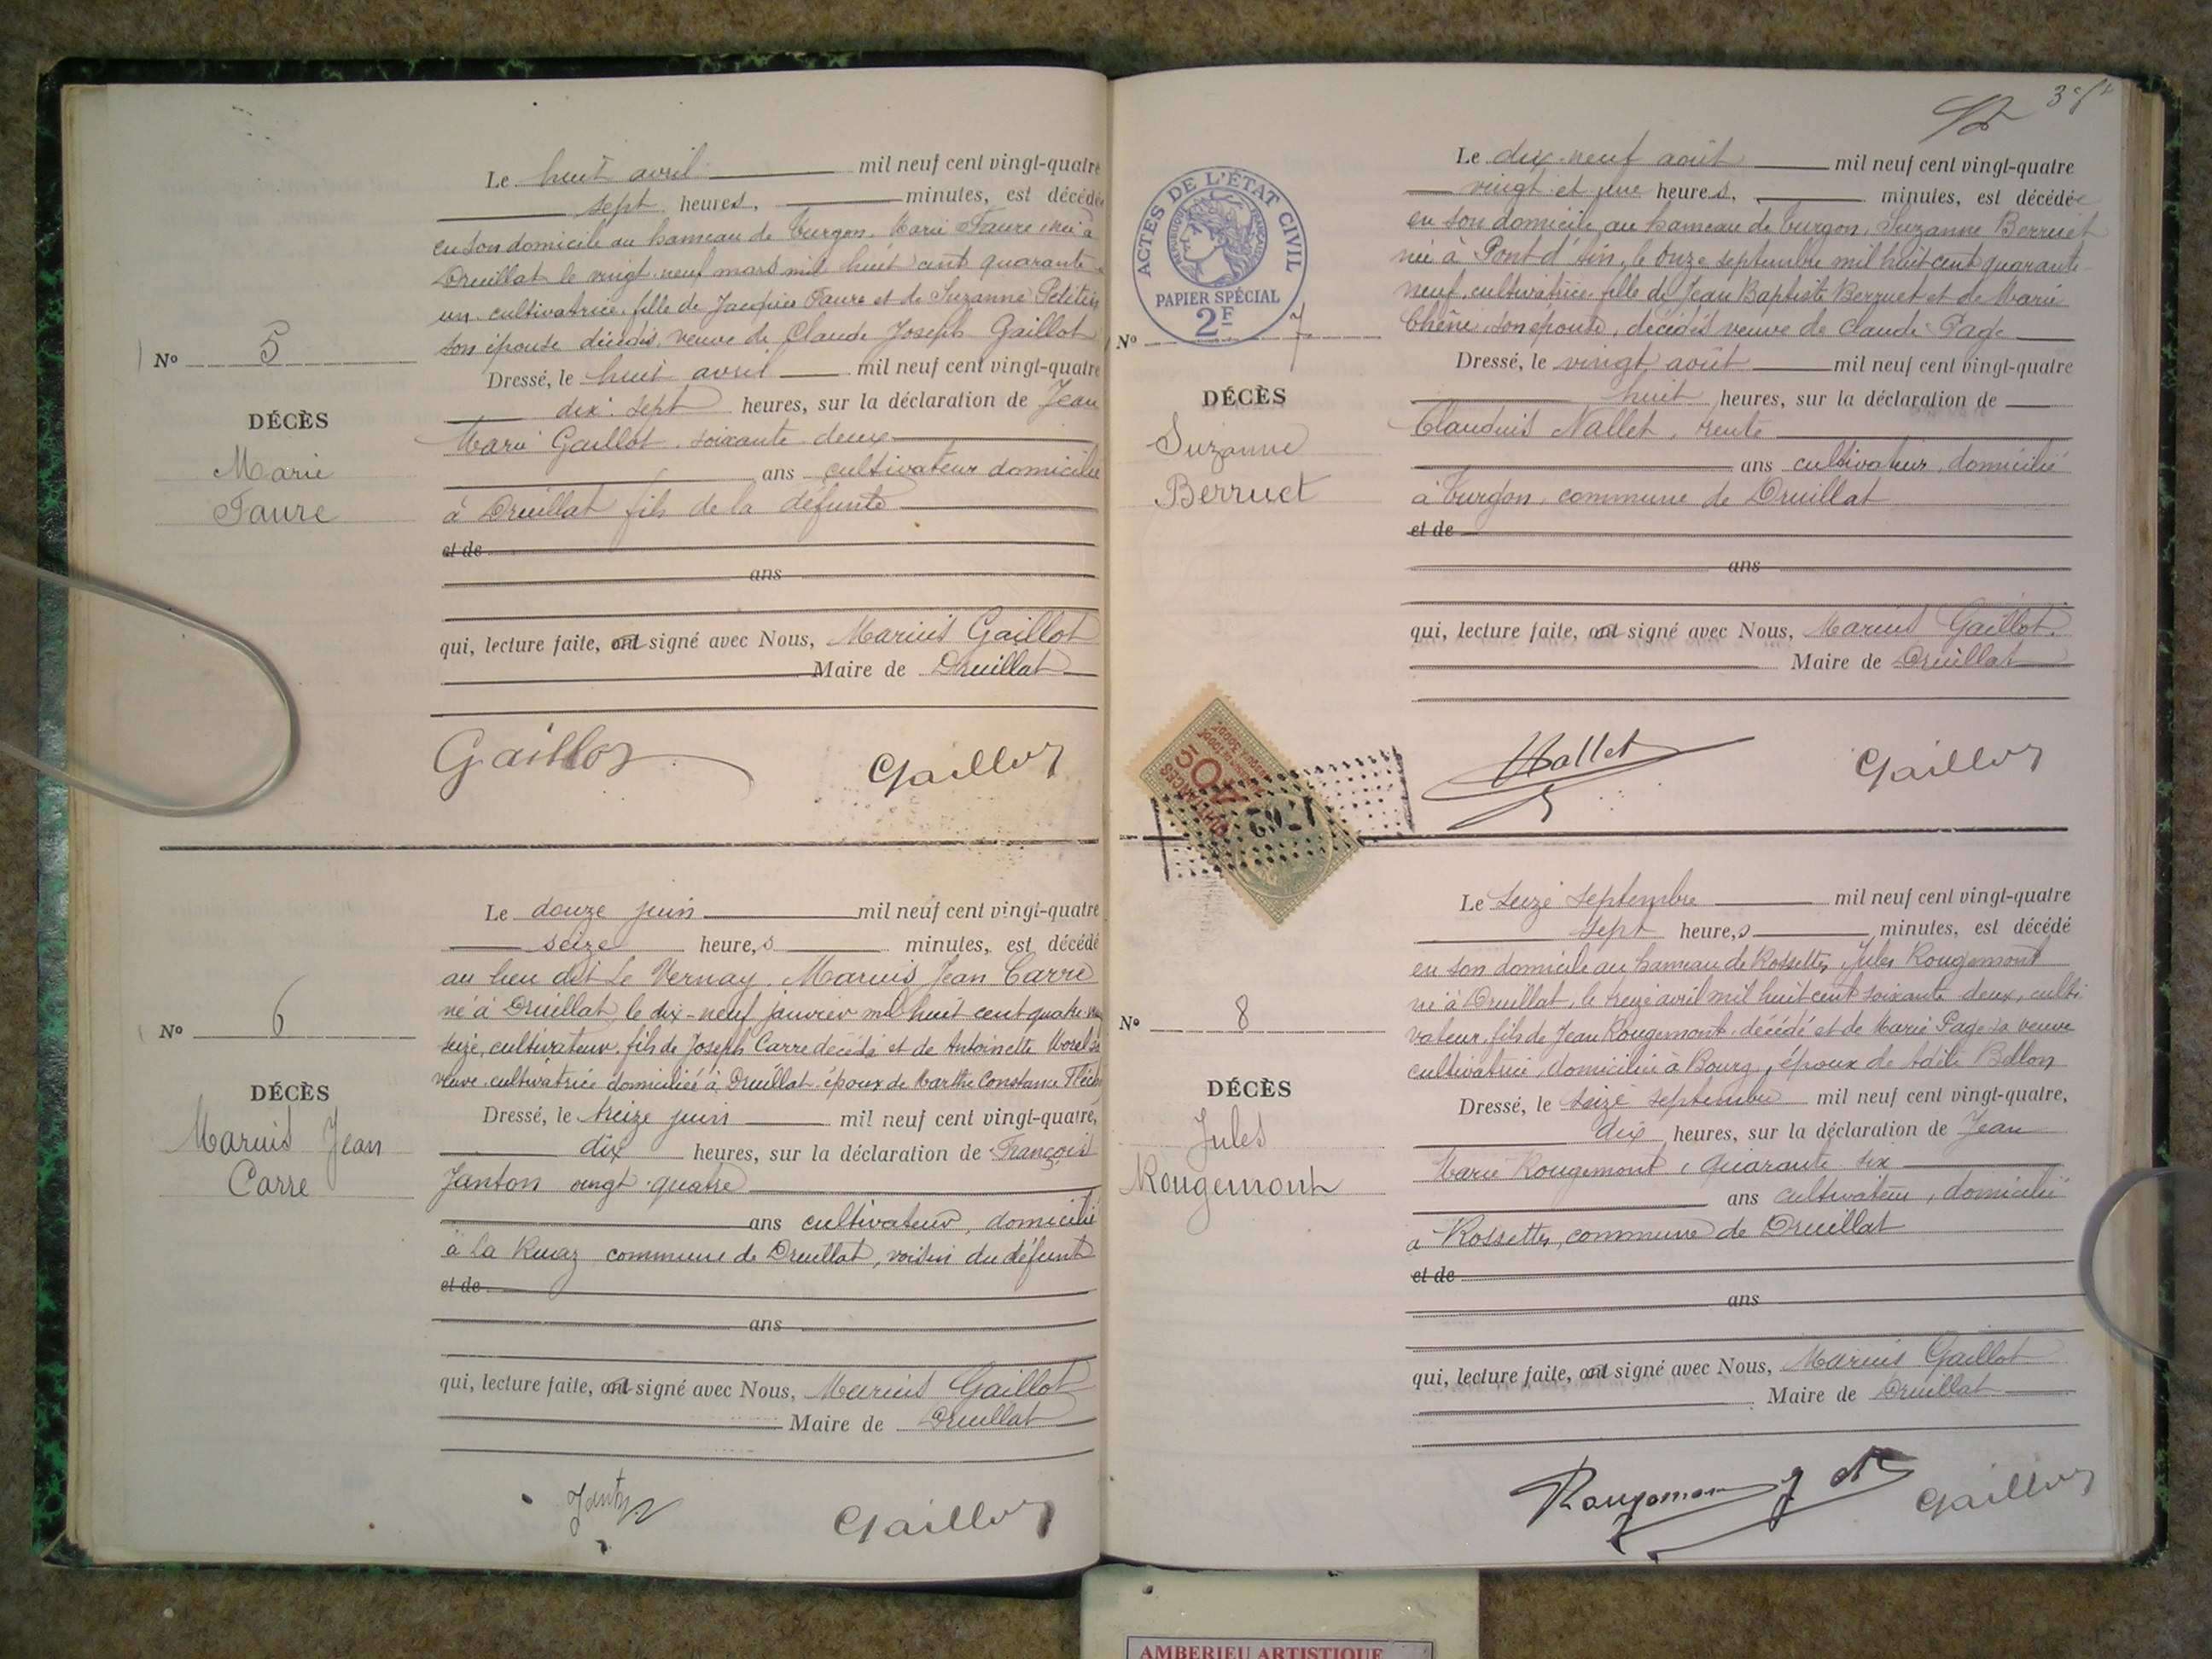 Le huit avril mil neuf cent vingt-quatre
sept heures, minutes, est décédée
en son domicile au hameau de Turgon, Marie Faure, née à
Druillat le vingt-neuf mars mil huit cent quarante
un, cultivatrice, fille de Jacques Faure et de Suzanne Petitin
son épouse décédés, veuve de Claude Joseph Gaillot
Nº 5
Dressé, le huit avril mil neuf cent vingt-quatre
dix-sept heures, sur la déclaration de Jean
DÉCÈS
Marie
Faure
Marie Gaillot, soixante-deux
ans cultivateur domicilié
à Druillat fils de la défunte
et de
ans
qui, lecture faite, ont signé avec Nous, Marius Gaillot
Maire de Druillat
Gaillot
Gaillot
Le douze juin mil neuf cent vingt-quatre
seize heure,s minutes, est décédé
au lieu dit Le Vernay, Marius Jean Carre
né à Druillat, le dix-neuf janvier mil huit cent quatre-
seize, cultivateur, fils de Joseph Carre décédé et de Antoinette Morel sa
veuve cultivatrice domiciliée à Druillat, époux de Marthe Constance
Nº 6
Dressé, le treize juin mil neuf cent vingt-quatre,
dix heures, sur la déclaration de François
DÉCÈS
Marius Jean
Carre
Janton vingt-quatre
ans cultivateur, domicilié
à La Ruaz commune de Druillat, voisin du défunt
et de
ans
qui, lecture faite, ont signé avec Nous, Marius Gaillot
Maire de Druillat
Janton
Gaillot
ACTES DE L'ÉTAT CIVIL
RÉPUBLIQUE FRANÇAISE
PAPIER SPÉCIAL
2F
Le dix-neuf août mil neuf cent vingt-quatre
vingt et une heures, minutes, est décédée
en son domicile au hameau de Turgon, Suzanne Berruet
née à Pont d'Ain, le onze septembre mil huit cent quarante-
neuf, cultivatrice, fille de Jean Baptiste Berruet et de Marie
Chêne, son épouse, décédés veuve de Claude Page
Nº 7
Dressé, le vingt août mil neuf cent vingt-quatre
huit heures, sur la déclaration de
DÉCÈS
Suzanne
Berruet
Claudius Nallet, trente
ans cultivateur, domicilié
à Turgon, commune de Druillat
et de
ans
qui, lecture faite, ont signé avec Nous, Marius Gaillot
Maire de Druillat
Nallet
Gaillot
Le seize septembre mil neuf cent vingt-quatre
sept heure,s minutes, est décédé
en son domicile au hameau de Rossettes, Jules Rougemont
né à Druillat, le treize avril mil huit cent soixante-deux, culti
vateur, fils de Jean Rougemont décédé et de Marie Page sa veuve
cultivatrice, domiciliée à Bourg, époux de Bellon
Nº 8
Dressé, le seize septembre mil neuf cent vingt-quatre,
dix heures, sur la déclaration de Jean
DÉCÈS
Jules
Rougemont
Marie Rougemont, quarante six
ans cultivateur, domicilié
à Rossettes, commune de Druillat
et de
ans
qui, lecture faite, ont signé avec Nous, Marius Gaillot
Maire de Druillat
Rougemont J M
Gaillot
AMBERIEU ARTISTIQUE